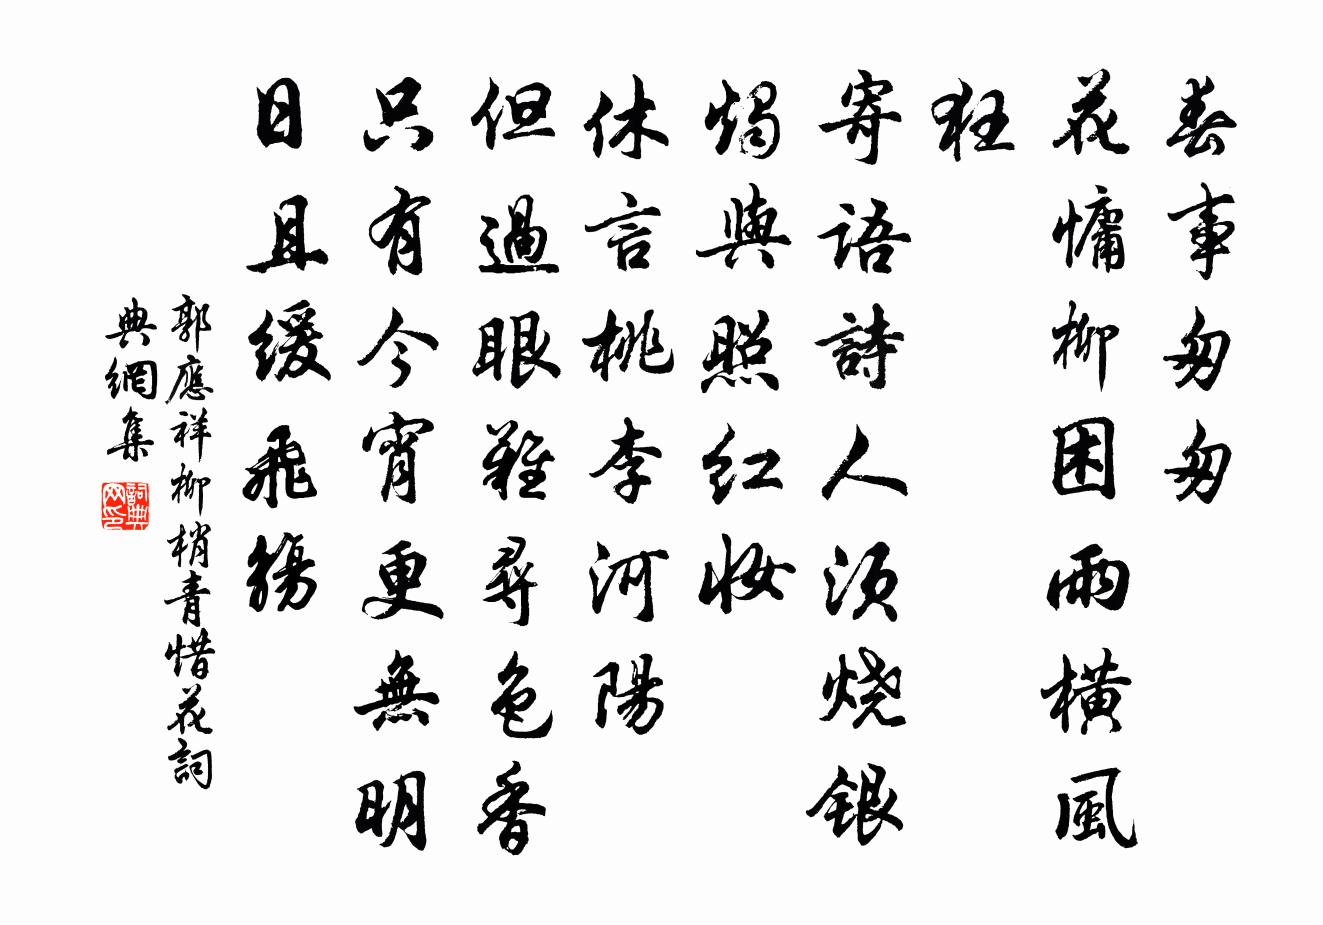 春事匆匆
花慵柳困雨橫風
狂
寄語詩人須燒銀
燭與照紅妝
休言桃李河陽
但過眼難尋色香
只有今宵更無明
日且緩飛觴
郭應祥柳梢青惜花詞
典網集
詞典网印